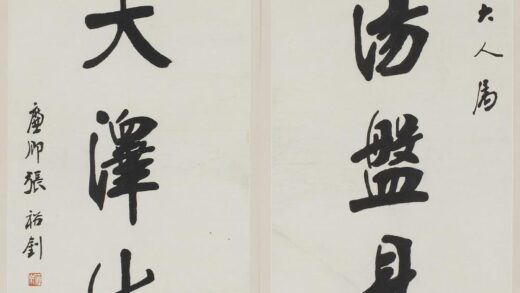 大人屬
湯盤
大澤
廉卿張裕釗